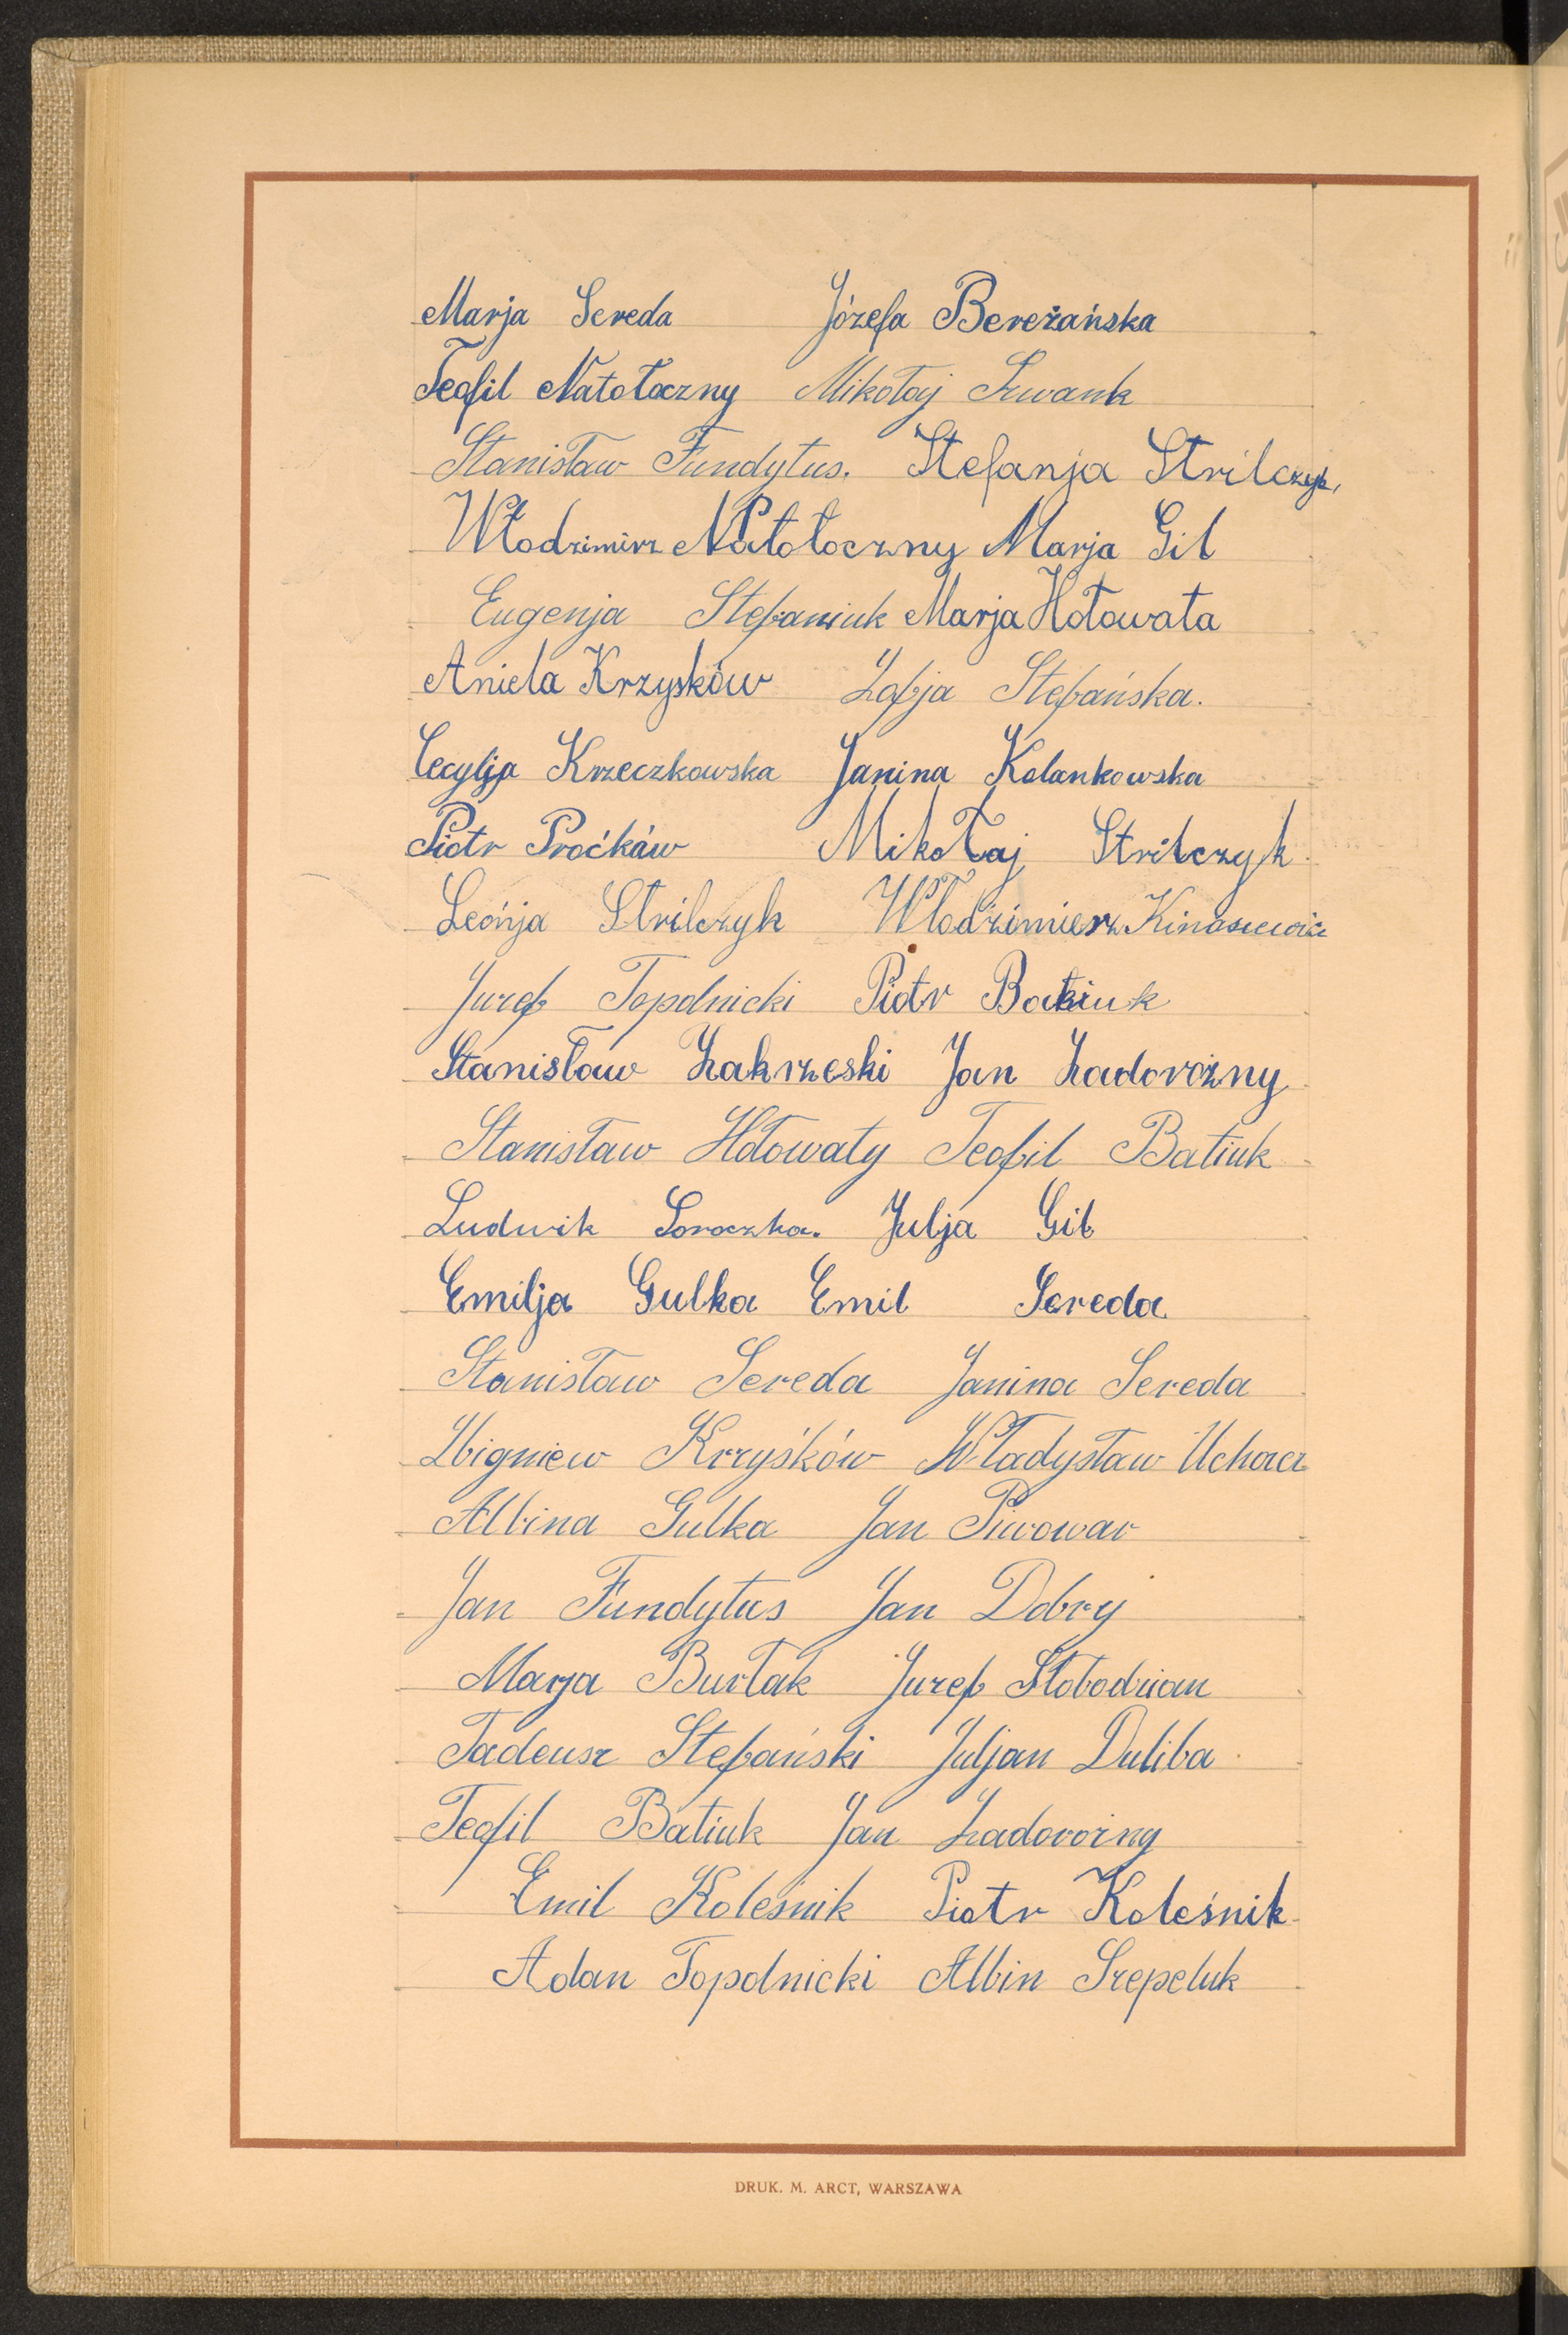 Marja Sereda Józefa Bereżańska
Teofil Natołoczny Mikołaj Szwank
Stanisław Fundytus. Stefanja Strilczyk,
Włodzimirz Natołoczny Marja Gil
Eugenja Stefaniuk Marja Hołowata
Aniela Krzyśków Zofja Stefańska.
Cecylja Krzeczkowska Janina Kolankowska
Piotr Proćków Mikołaj Strilczyk
Leonja Strilczyk Włodzimierz Kinasiewicz
Juzef Topolnicki Piotr Batiuk
Stanisław Zakrzeski Jan Zadorożny
Stanisław Hołowaty Teofil Batiuk
Ludwik Soroczka. Julja Gil
Emilja Gulka Emil Sereda
Stanisław Sereda Janina Sereda
Zbigniew Krzyśków Władysław Uchacz
Albina Gulka Jan Piwowar
Jan Fundytus Jan Dobry
Marja Burłak Juzef Słobodzian
Tadeusz Stefański Juljan Duliba
Teofil Batiuk Jan Zadorożny
Emil Koleśnik Piotr Koleśnik
Adam Topolnicki Albin Szepeluk
DRUK. M. ARCT, WARSZAWA